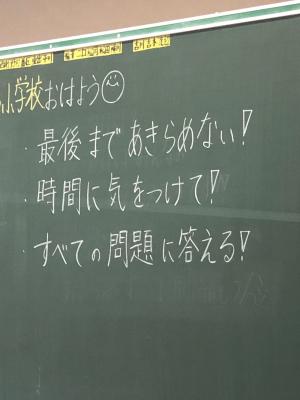 小学校おはよう
・最後まであきらめない!
・時間に気をつけて!
・すべての問題に答える!